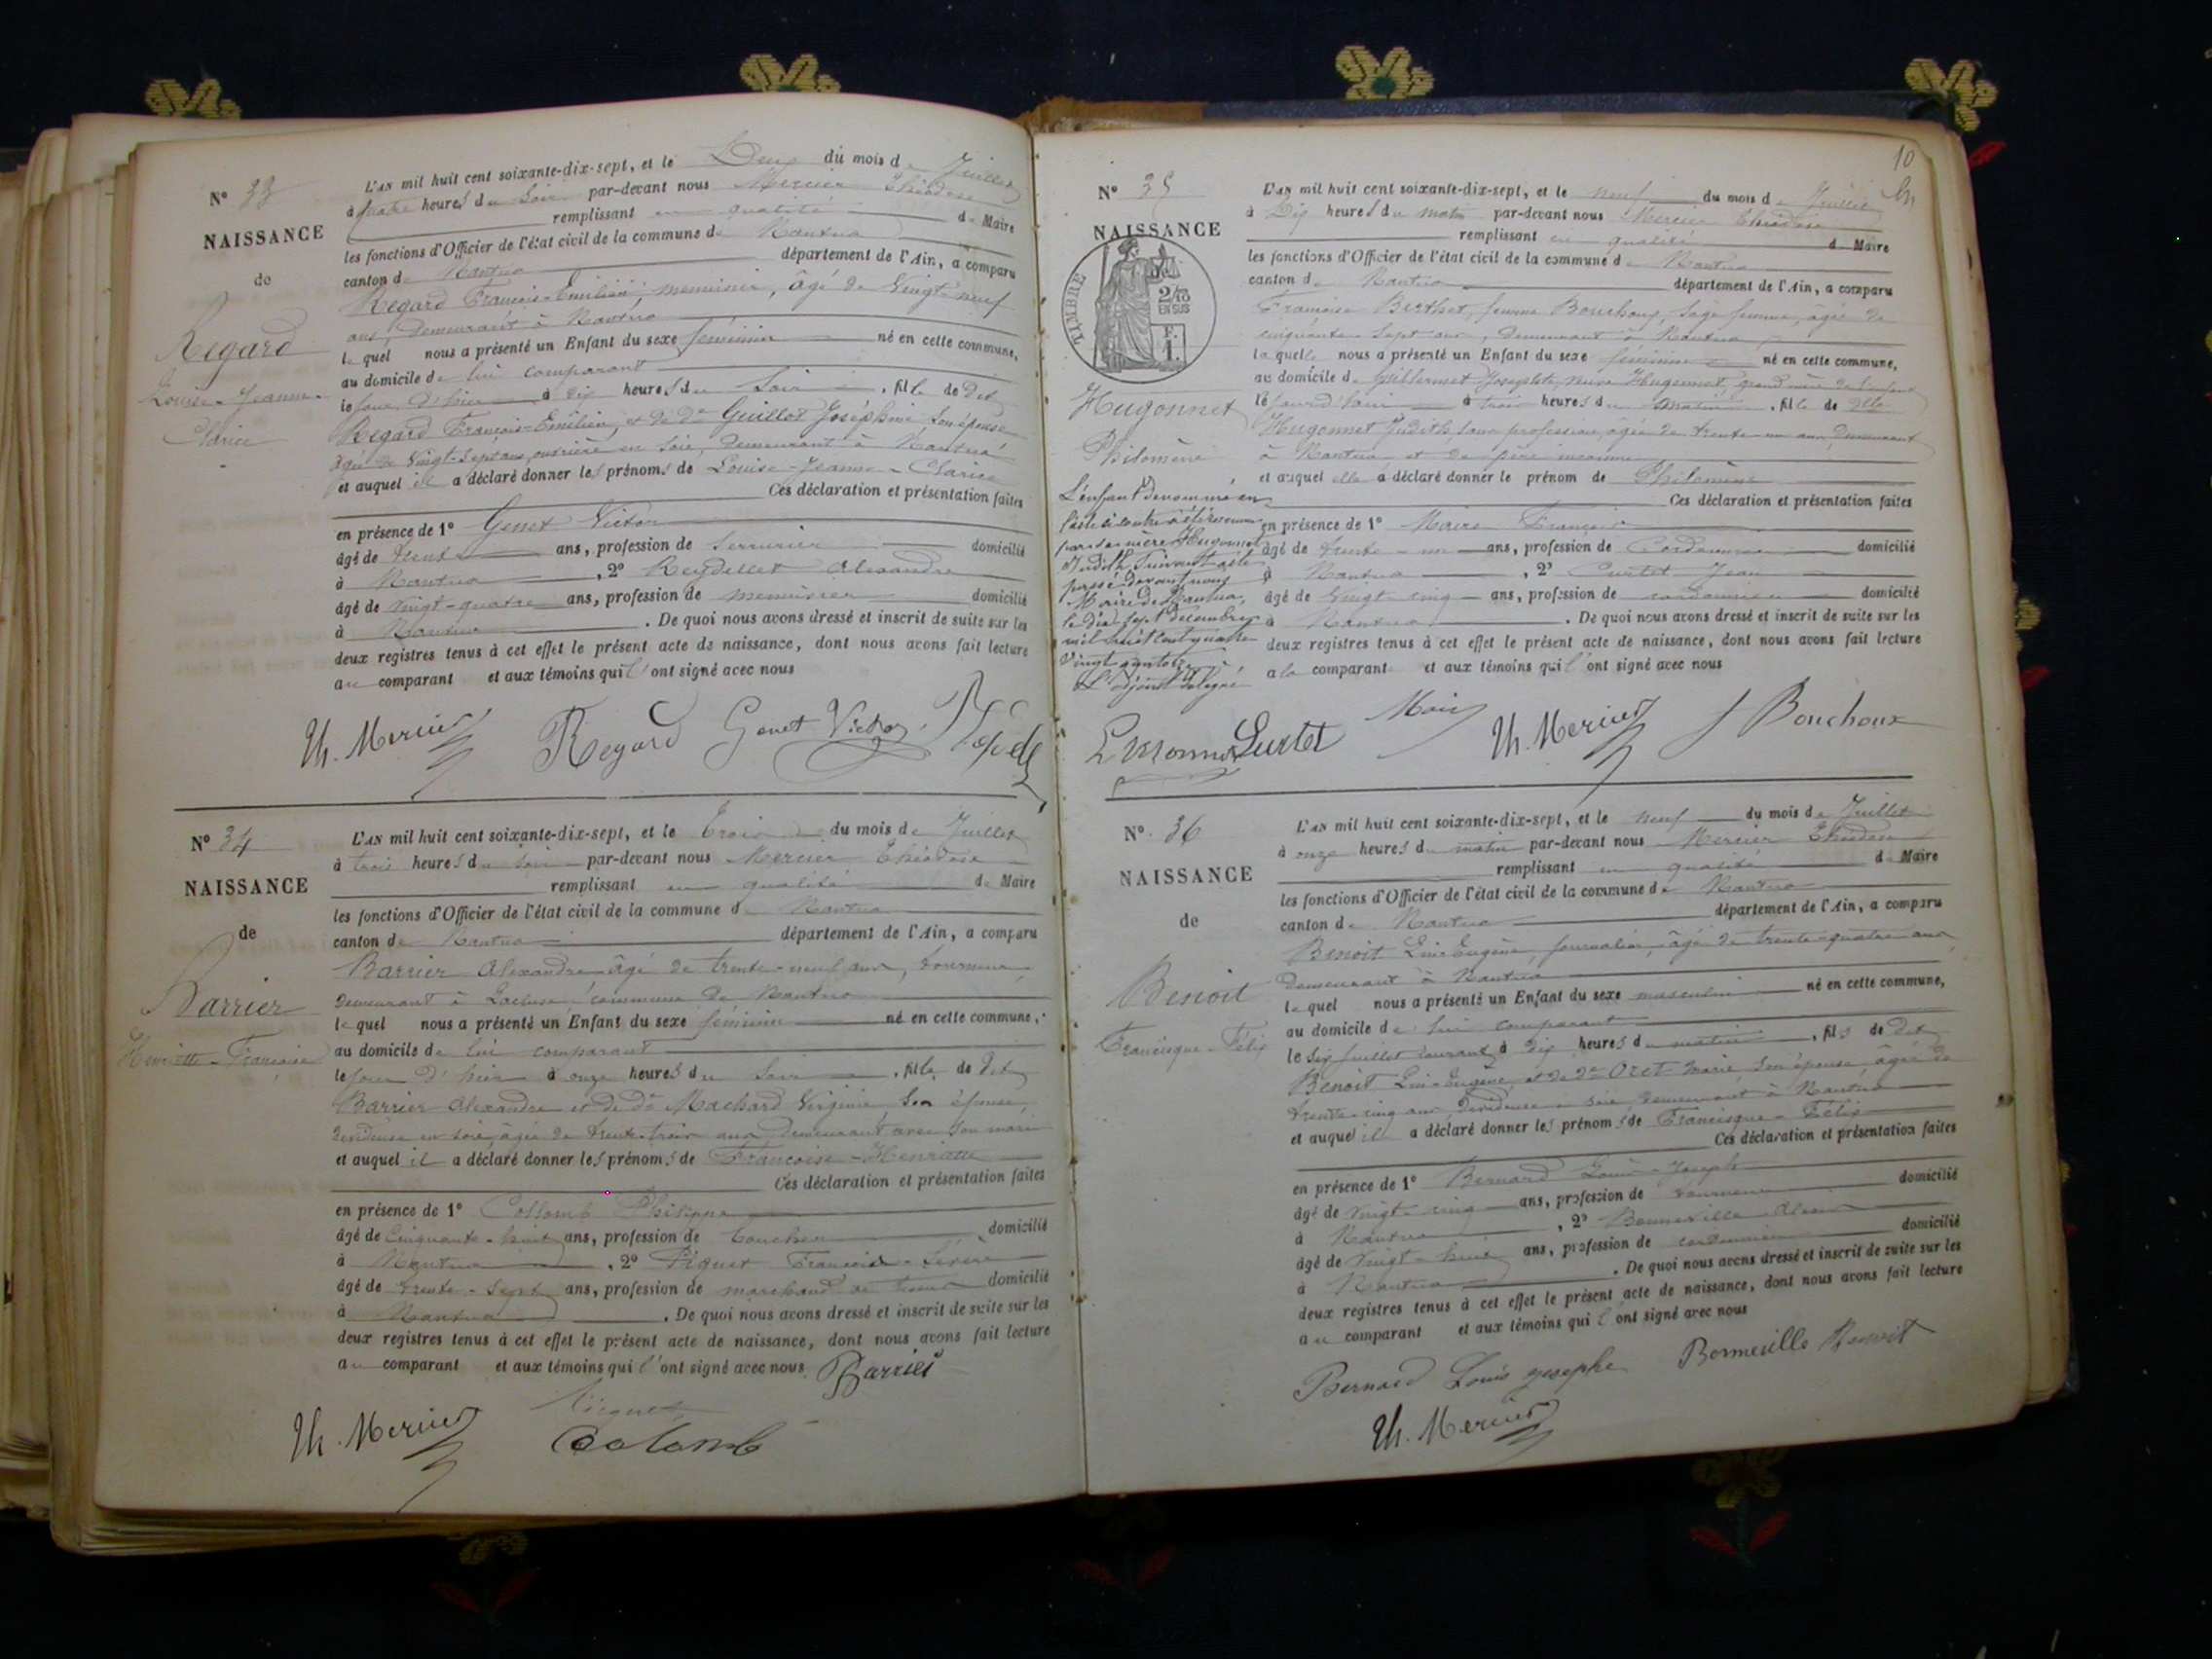 N° 33
NAISSANCE
de
Regard
Louise-Jeanne-
Clarice
L'AN mil huit cent soixante-dix-sept, et le Deux du mois de Juillet
à quatre heures du soir par-devant nous Mercier Théodose
remplissant en qualité de Maire
les fonctions d'Officier de l'état civil de la commune de Nantua
canton de Nantua département de l'Ain, a comparu
Regard François-Emilien, menuisier, âgé de Vingt-neuf
ans, demeurant à Nantua
lequel nous a présenté un Enfant du sexe féminin né en cette commune,
au domicile de lui comparant
le jour d'hier à dix heures du soir, fille de dit
Regard François-Emilien, et de De Guillot Joséphine son épouse
âgée de Vingt-sept ans, ouvrière en soie, demeurant à Nantua
et auquel il a déclaré donner les prénoms de Louise-Jeanne-Clarice
Ces déclaration et présentation faites
en présence de 1° Genet Victor
âgé de trente ans, profession de serrurier domicilié
à Nantua, 2° Reydellet Alexandre
âgé de Vingt-quatre ans, profession de menuisier domicilié
à Nantua. De quoi nous avons dressé et inscrit de suite sur les
deux registres tenus à cet effet le présent acte de naissance, dont nous avons fait lecture
au comparant et aux témoins qui l'ont signé avec nous
Th. Mercier Regard Genet Victor
N° 34
NAISSANCE
de
Barrier
Henriette-Françoise
L'AN mil huit cent soixante-dix-sept, et le Trois du mois de Juillet
à trois heures du soir par-devant nous Mercier Théodose
remplissant en qualité de Maire
les fonctions d'Officier de l'état civil de la commune de Nantua
canton de Nantua département de l'Ain, a comparu
Barrier Alexandre âgé de trente-neuf ans, tourneur,
demeurant à Lacluse, commune de Nantua
lequel nous a présenté un Enfant du sexe féminin né en cette commune,
au domicile de lui comparant
le jour d'hier à onze heures du soir, fille de dit
Barrier Alexandre et de De Machard Virginie, son épouse,
dévideuse en soie, âgée de trente-trois ans demeurant avec son mari
et auquel il a déclaré donner les prénoms de Françoise-Henriette
Ces déclaration et présentation faites
en présence de 1° Collomb Philippe
âgé de Cinquante-huit ans, profession de boucher domicilié
à Nantua, 2° Piquet François
âgé de trente-sept ans, profession de marchand de domicilié
à Nantua. De quoi nous avons dressé et inscrit de suite sur les
deux registres tenus à cet effet le présent acte de naissance, dont nous avons fait lecture
au comparant et aux témoins qui l'ont signé avec nous. Barrier
Th. Mercier Colomb
10
N° 35
NAISSANCE
TIMBRE
2/10
EN SUS
F.
1.
Hugonnet
Philomène
L'enfant dénommé en
l'acte ci contre a été reconnu
par sa mère Hugonnet
Judith, suivant acte
passé devant nous
Maire de Nantua,
le dix sept décembre
mil huit cent quatre
vingt quatorze
L'adjoint délégué
L'AN mil huit cent soixante-dix-sept, et le neuf du mois de Juillet
à Dix heures du matin par-devant nous Mercier Théodose
remplissant en qualité de Maire
les fonctions d'Officier de l'état civil de la commune de Nantua
canton de Nantua département de l'Ain, a comparu
Françoise Berthet, femme Bouchoux, sage femme, âgée de
cinquante-sept ans, demeurant à Nantua
laquelle nous a présenté un Enfant du sexe féminin né en cette commune,
au domicile de Josephte, veuve Hugonnet, grand'mère de l'enfant
le jour d'hier à trois heures du matin, fille de
Hugonnet Judith, sans profession, âgée de trente-un ans, demeurant
à Nantua et de père inconnu
et auquel elle a déclaré donner le prénom de Philomène
Ces déclaration et présentation faites
en présence de 1° Maire François
âgé de trente-un ans, profession de Cordonnier domicilié
à Nantua, 2° Curtet Jean
âgé de Vingt-cinq ans, profession de cordonnier domicilié
à Nantua. De quoi nous avons dressé et inscrit de suite sur les
deux registres tenus à cet effet le présent acte de naissance, dont nous avons fait lecture
à la comparante et aux témoins qui l'ont signé avec nous
Curtet Maire Th. Mercier F Bouchoux
N° 36
NAISSANCE
de
Benoit
Francisque-Félix
L'AN mil huit cent soixante-dix-sept, et le neuf du mois de Juillet
à onze heures du matin par-devant nous Mercier Théodose
remplissant en qualité de Maire
les fonctions d'Officier de l'état civil de la commune de Nantua
canton de Nantua département de l'Ain, a comparu
Benoit Lin-Eugène, journalier, âgé de trente-quatre ans,
demeurant à Nantua
lequel nous a présenté un Enfant du sexe masculin né en cette commune,
au domicile de lui comparant
le six juillet courant à dix heures du matin, fils de dit
Benoit Lin-Eugène, et de De Oret Marie, son épouse, âgée de
trente-cinq ans, dévideuse en soie demeurant à Nantua
et auquel il a déclaré donner les prénoms de Francisque-Félix
Ces déclaration et présentation faites
en présence de 1° Bernard Louis-Joseph
âgé de Vingt-cinq ans, profession de tourneur domicilié
à Nantua, 2° Bonneville
âgé de Vingt-huit ans, profession de cordonnier domicilié
à Nantua. De quoi nous avons dressé et inscrit de suite sur les
deux registres tenus à cet effet le présent acte de naissance, dont nous avons fait lecture
au comparant et aux témoins qui l'ont signé avec nous
Bernard Louis Josephe Bonneville Benoit
Th. Mercier